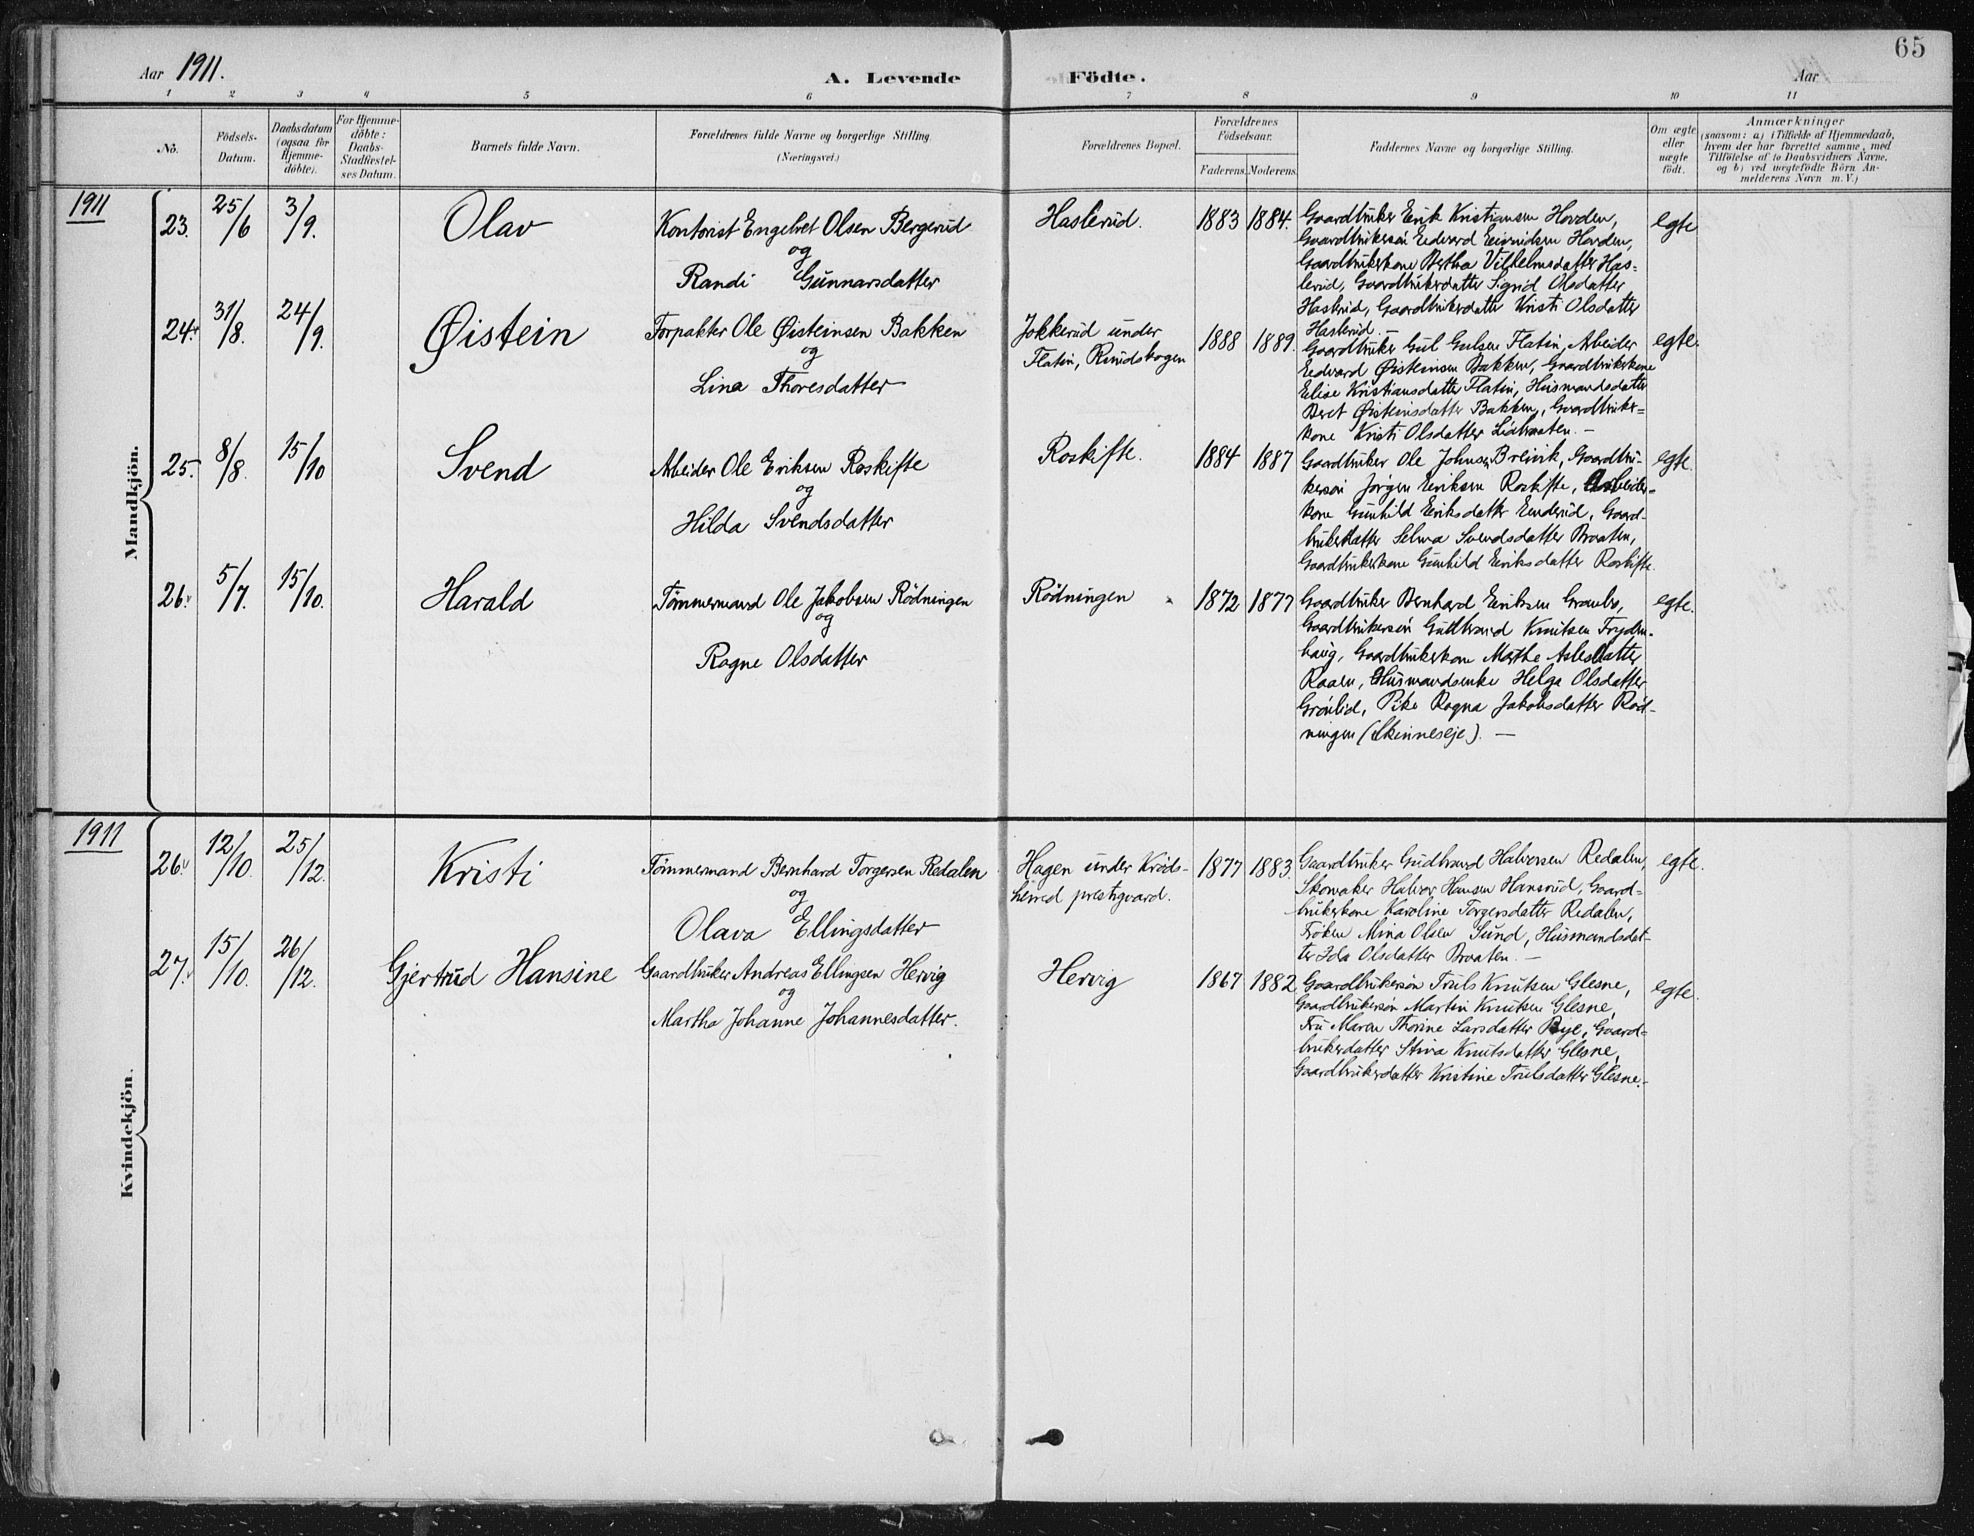 65
Aar 1911. A. Levende Födte. Aar
1 2 3 4 5 6 7 8 9 10 11
No.
Födsels-
Datum.
Daabsdatum
(ogsaa for
Hjemme-
döbte).
For Hjemme-
döbte:
Daabs-
Stadfæstel-
ses Datum.
Barnets fulde Navn.
Forældrenes fulde Navne og borgerlige Stilling.
(Næringsvei.)
Forældrenes Bopæl.
Forældrenes
Födselsaar.
Faderens. Moderens.
Faddernes Navne og borgerlige Stilling.
Om ægte
eller
uægte
födt.
Anmærkninger
(saasom: a) i Tilfælde af Hjemmedaab,
hvem der har forrettet samme, med
Tilföielse af to Daabsvidners Navne,
og b) ved uægtefödte Börn An-
melderens Navn m. V.)
1911
Mandkjön.
23. 25/6 3/9. Olav
Kontorist Engebret Olsen Bergerud
og
Randi Gunnarsdatter
Haslerud. 1883 1884.
Gaardbruker Erik Kristiansen Hovden,
Gaardbrukersön Edvard Eivindsen Hovden,
Gaardbrukerkone Bertha Vilhelmsdatter Has-
lerud, Gaardbrukerdatter Sigrid Olsdatter
Haslerud, Gaardbrukerdatter Kristi Olsdatter
Haslerud. —
egte
24. 31/8. 24/9. Øistein
Forpakter Ole Øisteinsen Bakken
og
Lina Thoresdatter
Jokkerud under
Flatin, Rudskogen
1888 1889.
Gaardbruker Gul Gulsen Flatin, Arbeider
Edvard Øisteinsen Bakken, Gaardbrukerkone
Elise Kristiansdatter Flatin, Husmandsdatter
Beret Øisteinsdatter Bakken, Gaardbruker-
kone Kristi Olsdatter Lidbraaten. —
egte.
25. 8/8. 15/10 Svend
Arbeider Ole Eriksen Roskifte
og
Hilda Svendsdatter
Roskifte. 1884 1887
Gaardbruker Ole Johnsen Breivik, Gaardbru-
kersön Jörgen Eriksen Roskifte, Arbeider-
kone Gunhild Eriksdatter Enderud, Gaard-
brukerdatter Selma Svendsdatter Braaten,
Gaardbrukerkone Gunhild Eriksdatter Roskifte.
egte.
26. 5/7. 15/10. Harald
Tömmermand Ole Jakobsen Rödningen
og
Ragne Olsdatter
Rödningen 1872 1877
Gaardbruker Bernhard Eriksen
Gaardbrukersön Gudbrand Knutsen Fryden-
haug, Gaardbrukerkone Marthe Aslesdatter
Raaen, Husmandsenke Helga Olsdatter
Grönlid, Pike Ragna Jakobsdatter Röd-
ningen (Skinneseje). —
egte.
1911
Kvindekjön.
26. 12/10. 25/12. Kristi
Tömmermand Bernhard Torgersen Redalen
og
Olava Ellingsdatter
Hagen under Kröds-
herred prestgaard.
1877 1883.
Gaardbruker Gudbrand Halvorsen Redalen,
Skomaker Halvor Hansen Hansrud, Gaard-
brukerkone Karoline Torgersdatter Redalen,
Fröken Mina Olsen Sund, Husmandsdat-
ter Ida Olsdatter Braaten. —
egte.
27. 15/10. 26/12. Gjertrud Hansine
Gaardbruker Andreas Ellingsen Hervig
og
Martha Johanne Johannesdatter.
Hervig 1867 1882
Gaardbrukersön Truls Knutsen Glesne,
Gaardbrukersön Martin Knutsen Glesne,
Fru Maren Thorine Larsdatter Bye, Gaard-
brukerdatter Stina Knutsdatter Glesne,
Gaardbrukerdatter Kristine Trulsdatter Glesne.
egte.